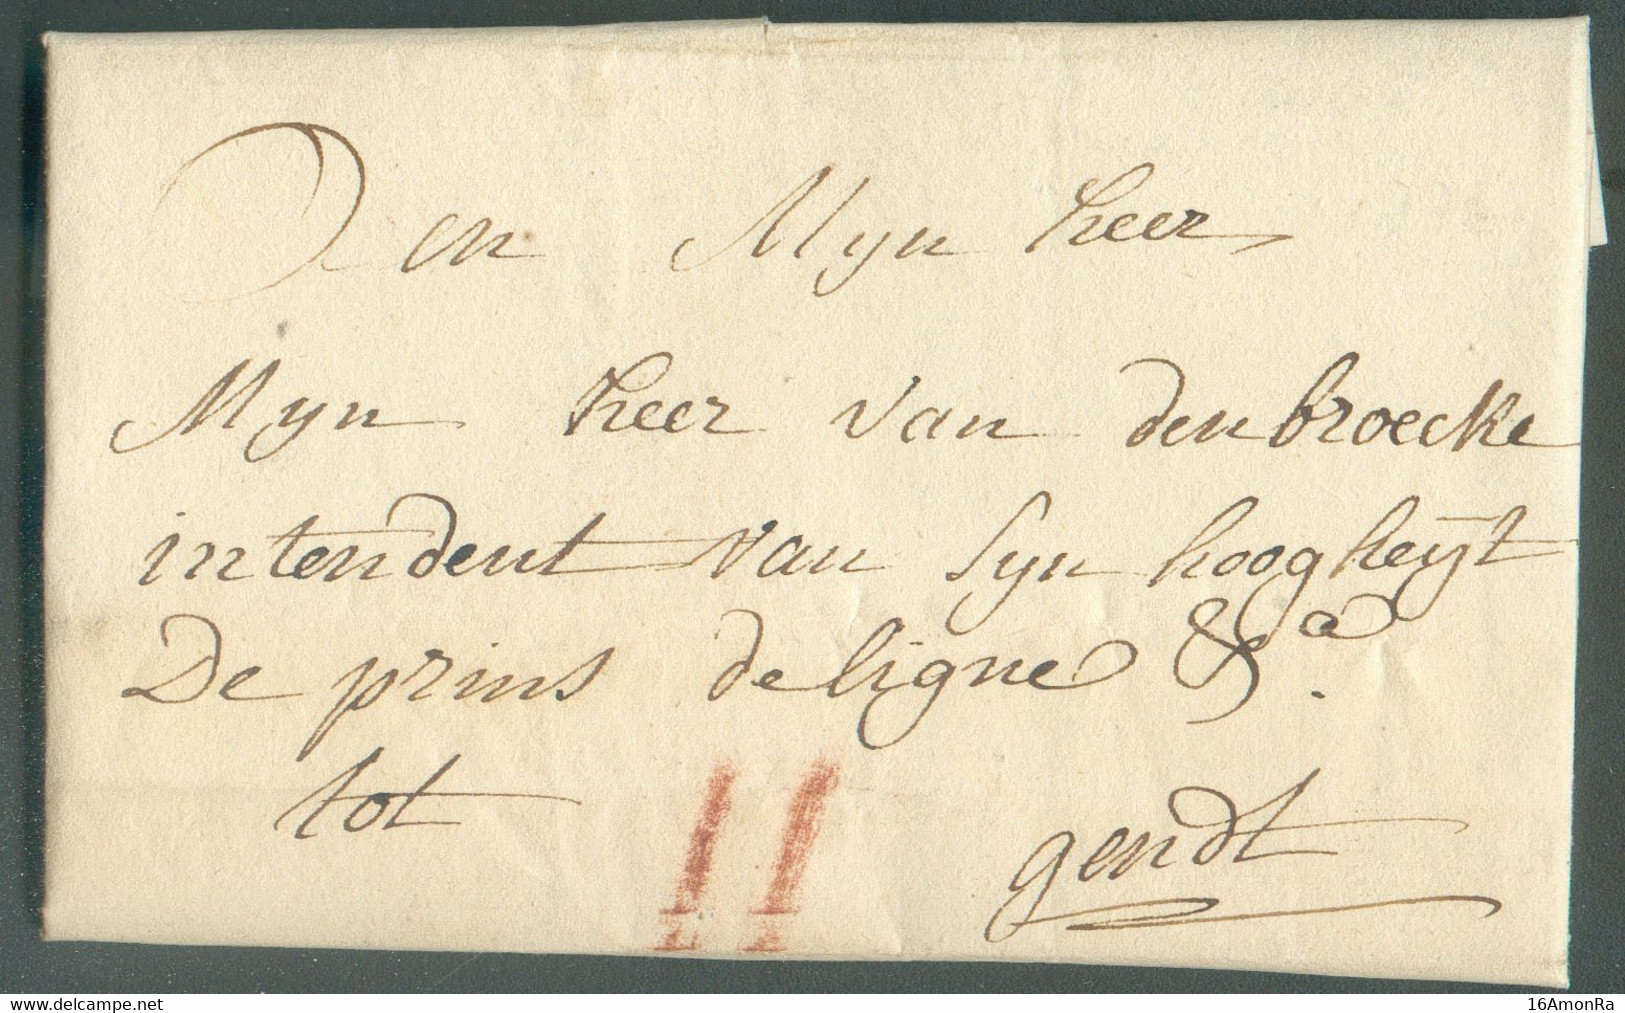 Den Myn heer
Myn heer van denbroecke
intendent van Syn hoogheyt
De prins de ligne &a.
tot II
gendt
www.delcampe.net
16AmonRa